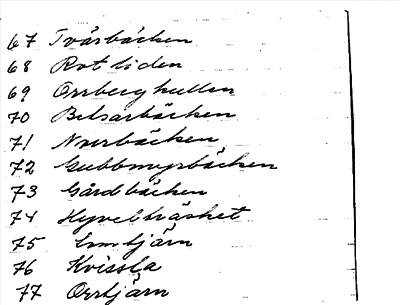 67 Tvärbäcken
68 Rotliden
69 Orrbergkullen
70 Belsarbäcken
71 Norrbäcken
72 Gubbmyrbäcken
73 Gårdbäcken
74 Hyvelträsket
75
76 Kvissla
77 Orrtjärn